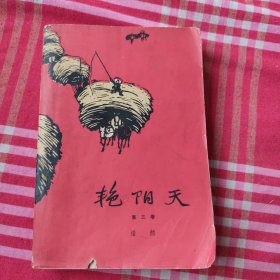 艳阳天
第三卷
浩然